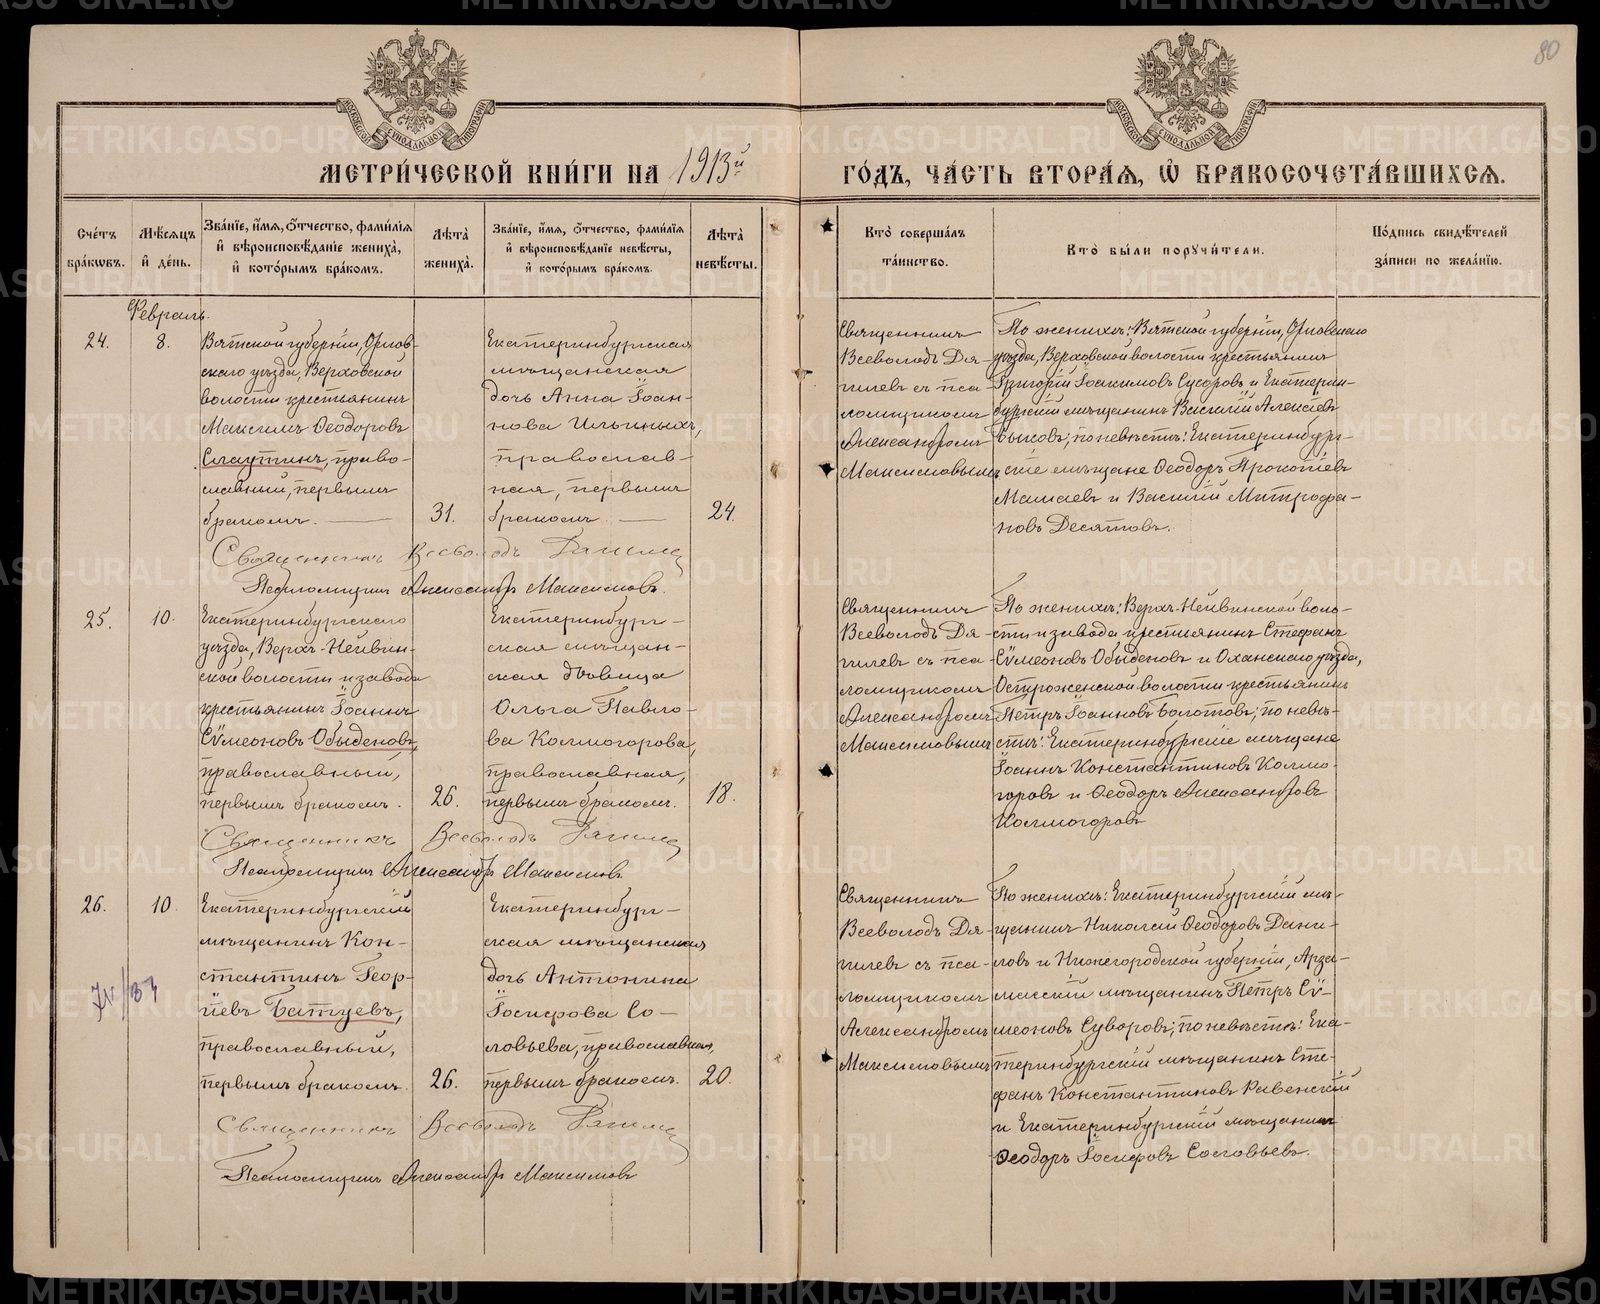 80
МЕТРИ́ЧЕСКОЙ КНИ́ГИ НА 1913й ГО́ДЪ, ЧА́СТЬ ВТОРА́Я, Ѽ БРАКОСОЧЕТА́ВШИХСЯ.
Сче́тъ бра́кωвъ.
Мѣ́сяцъ и҆ де́нь.
Зва́нїе, и҆́мя, ѻ҆́тчество, фами́лїя и҆ вѣроисповѣ́данїе жениха̀, и҆ кото́рымъ бра́комъ.
Лѣ́та жениха̀.
Зва́нїе, и҆́мя, ѻ҆́тчество, фами́лїя и҆ вѣроисповѣ́данїе невѣ́сты, и҆ кото́рымъ бра́комъ.
Лѣ́та невѣ́сты.
Кто̀ соверша́лъ та́инство.
Кто̀ бы́ли порꙋчи́тели.
По́дпись свидѣ́телей за́писи по жела́нїю.
Февраль.
24.
8.
Вятской губернiи, Орлов-
скаго уѣзда, Верховской
волости крестьянинъ
Максимъ Ѳеодоровъ
Слаутинъ, право-
славный, первымъ
бракомъ.
31.
Екатеринбургская
мѣщанская
дочь Анна Iоан-
нова Ильиныхъ,
православ-
ная, первымъ
бракомъ.
24.
Священникъ
Всеволодъ Дя-
гилевъ съ пса-
ломщикомъ
Александромъ
Максимовымъ
По женихѣ: Вятской губернiи, Орловскаго
уѣзда, Верховской волости крестьянинъ
Григорiй Iоакимовъ Суворовъ и Екатерин-
бургскiй мѣщанинъ Василiй Алексѣевъ
Быковъ; по невѣстѣ: Екатеринбург-
скiе мѣщане Ѳеодоръ Прокопiевъ
Мамаевъ и Василiй Митрофа-
новъ Десятовъ.
Священникъ Всеволодъ Дягилевъ
Псаломщикъ Александръ Максимовъ.
25.
10.
Екатеринбургскаго
уѣзда, Верхъ-Нейвин-
ской волости и завода
крестьянинъ Iоаннъ
Сѵмеоновъ Обыденовъ,
православный,
первымъ бракомъ.
26.
Екатеринбург-
ская мѣщан-
ская дѣвица
Ольга Павло-
ва Колмогорова,
православная,
первымъ бракомъ.
18.
Священникъ
Всеволодъ Дя-
гилевъ съ пса-
ломщикомъ
Александромъ
Максимовымъ
По женихѣ: Верхъ-Нейвинской воло-
сти и завода крестьянинъ Стефанъ
Сѵмеоновъ Обыденовъ и Оханскаго уѣзда,
Острожской волости крестьянинъ
Петръ Iоанновъ Болотовъ; по невѣ-
стѣ: Екатеринбургскiе мѣщане
Iоаннъ Константиновъ Колмо-
горовъ и Ѳеодоръ Александровъ
Колмогоровъ
Священникъ Всеволодъ Дягилевъ
Псаломщикъ Александръ Максимовъ
26.
10.
Екатеринбургскiй
мѣщанинъ Кон-
стантинъ Геор-
гiевъ Батуевъ,
православный,
первымъ бракомъ.
26.
Екатеринбург-
ская мѣщанская
дочь Антонина
Iосифова Со-
ловьева, православная,
первымъ бракомъ.
20.
Священникъ
Всеволодъ Дя-
гилевъ съ пса-
ломщикомъ
Александромъ
Максимовымъ
По женихѣ: Екатеринбургскiй мѣ-
щанинъ Николай Ѳеодоровъ Дани-
ловъ и Нижегородской губернiи, Арза-
масскiй мѣщанинъ Петръ Сѵ-
меоновъ Суворовъ; по невѣстѣ: Ека-
теринбургскiй мѣщанинъ Сте-
фанъ Константиновъ Равенскiй
и Екатеринбургскiй мѣщанинъ
Ѳеодоръ Iосифовъ Соловьевъ.
Священникъ Всеволодъ Дягилевъ
Псаломщикъ Александръ Максимовъ
METRIKI.GASO-URAL.RU